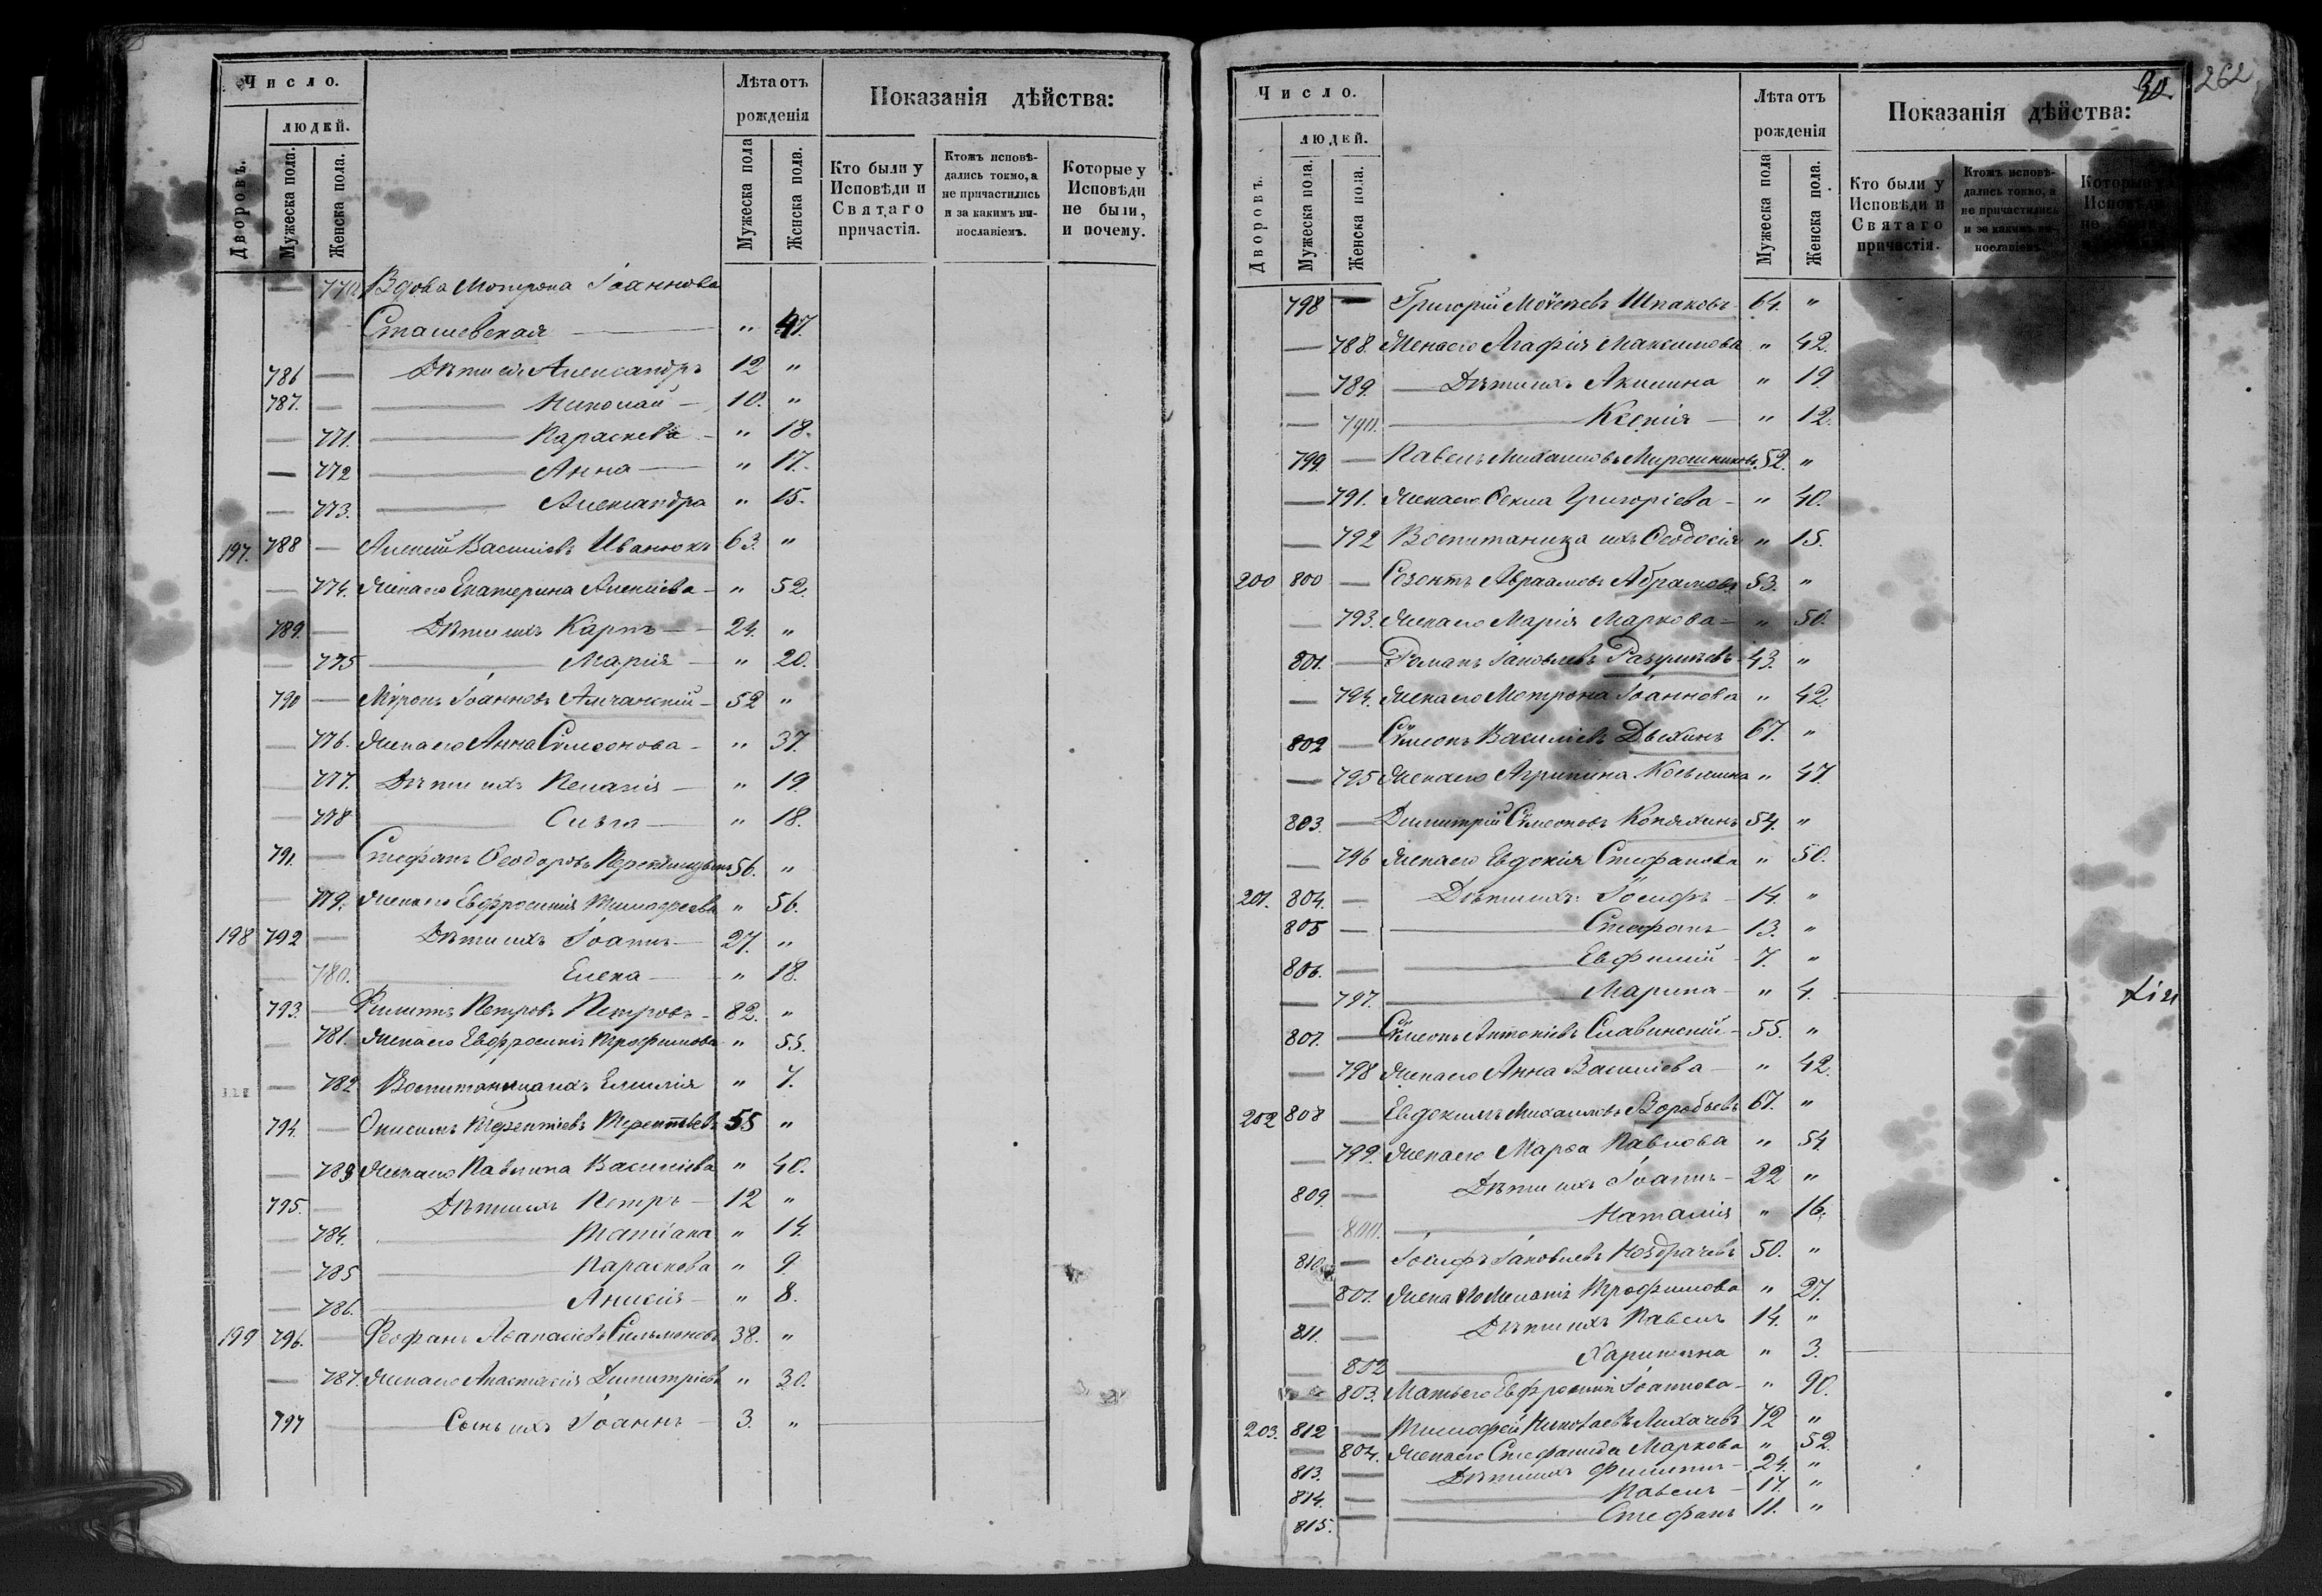 Число.
людей.
Дворовъ.
Мужеска пола.
Женска пола.
Лѣта отъ рожденія
Мужеска пола
Женска пола.
Показанія дѣйства:
Кто были у Исповѣди и Святаго причастія.
Ктожъ исповѣ-дались токмо, а не причастились и за какимъ ви-нословіемъ.
Которые у Исповѣди не были, и почему.
— 770. Вдова Мотрона Іоаннова
Сташевская — " 47.
786 — Дѣти ея Александръ 12 "
787. — Николай — 10. "
— 771. Параскева — " 18.
— 772 Анна — " 17.
— 773. Александра " 15.
197. 788 — Алексій Василіевъ Иванюкъ 63. "
— 774. Жена его Екатерина Алексіева — " 52.
789. — Дѣти ихъ Карпъ — 24. "
— 775 Марія — " 20.
790 — Мѵронъ Іоанновъ Амчанскій — 52 "
— 776. Жена его Анна Сѵмеонова — " 37.
— 777. Дѣти ихъ Меланія — " 19.
— 778 — " 18.
791. — Стефанъ Ѳеодоровъ 56. "
— 779. Жена его Евфросинія Тимофеева " 56.
198 792 — Дѣти ихъ Іоаннъ — 27. "
— 780. Елена — " 18.
793. — Филиппъ Петровъ Петровъ — 82. "
— 781. Жена его Евфросинія Трофимова " 55.
— 782 Воспитанница ихъ Емилія " 7.
794. — Онисимъ Терентіевъ Терентьевъ 55 "
— 783 Жена его Павлина Василіева " 40.
795. — Дѣти ихъ Петръ — 12 "
— 784. Татіана " 14.
— 785 Параскева " 9.
— 786. Анисія — " 8.
199 796. — Феофанъ Аѳанасіевъ Сильменовъ 38. "
— 787. Жена его Анастасія Димитріева " 30.
797 — Сынъ ихъ Іоаннъ — 3. "
30. 262
Число.
людей.
Дворовъ.
Мужеска пола.
Женска пола.
Лѣта отъ рожденія
Мужеска пола
Женска пола.
Показанія дѣйства:
Кто были у Исповѣди и Святаго причастія.
Ктожъ исповѣ-дались токмо, а не причастились и за какимъ ви-нословіемъ.
Которые у Исповѣди не были,
798 — Григорій Моѵсеевъ Шпаковъ 64. "
— 788. Жена его Агафія Максимова " 42.
— 789. Дѣти ихъ Акилина " 19
— 790. Ксенія — " 12.
799. — Павелъ Михаиловъ Мирошниковъ 52. "
— 791. Жена его Ѳекла Григоріева — " 40.
— 792 Воспитаница ихъ Ѳеодосія " 15.
200 800 — Созонтъ Авраамовъ Абрамовъ 53. "
— 793. Жена его Марія Маркова — " 50.
801. — Романъ Іаковлевъ Разумѣевъ 43. "
— 794. Жена его Мотрона Іоаннова " 42.
802 — Сѵмеонъ Василіевъ Двехинъ 67. "
— 795 Жена его Агрипина Косьмина " 47.
803. — Димитрій Сѵмеоновъ Коняхинъ 54. "
— 796 Жена его Евдокія Стефанова " 50.
201. 804. — Дѣти ихъ: Іосифъ — 14. "
805 — Стефанъ — 13. "
806. — Евфимій — 7. "
— 797. Марина — " 4.
807. — Сѵмеонъ Антоніевъ Славинскій — 55. "
— 798 Жена его Анна Василіева — " 42.
202 808 — Евдокимъ Михаиловъ Воробьевъ 67. "
— 799. Жена его Марѳа Павлова " 54
809. — Дѣти ихъ Іоаннъ — 22 "
— 800. Наталія " 16.
810. — Іосифъ Іаковлевъ Ноздрачевъ 50. "
— 801. Жена его Меланія Трофимова " 27.
811. — Дѣти ихъ Павелъ 14. "
— 802 Харитина " 3.
803. Мать его Евфросинія Іоаннова — " 90.
203. 812 — Тимофей Николаевъ Лихачевъ 72 "
— 804. Жена его Стефанида Маркова " 52.
813. — Дѣти ихъ Филиппъ — 24. "
814. — Павелъ — 17. "
815. — Стефанъ 11. "